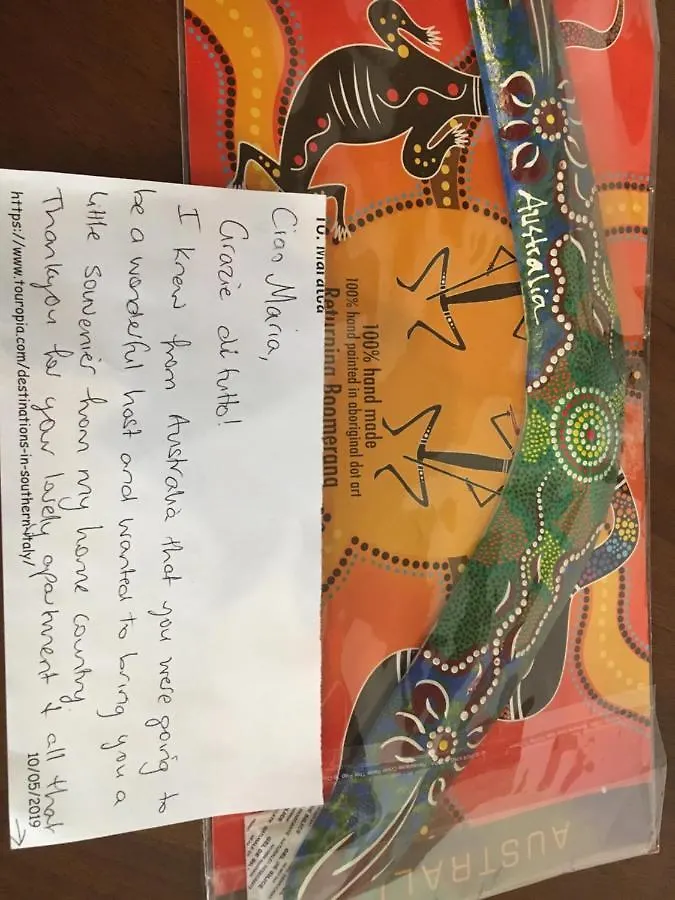 Ciao Maria,
Grazie di tutto!
I knew from Australia that you were going to
be a wonderful host and wanted to bring you a
little souvenier from my home country.
Thankyou for your lovely apartment & all that
https://www.touropia.com/destinations-in-southern-italy/
10/05/2019
10. Maratea
100% hand made
100% hand painted in aboriginal dot art
Returning Boomerang
Australia
AUSTRAL